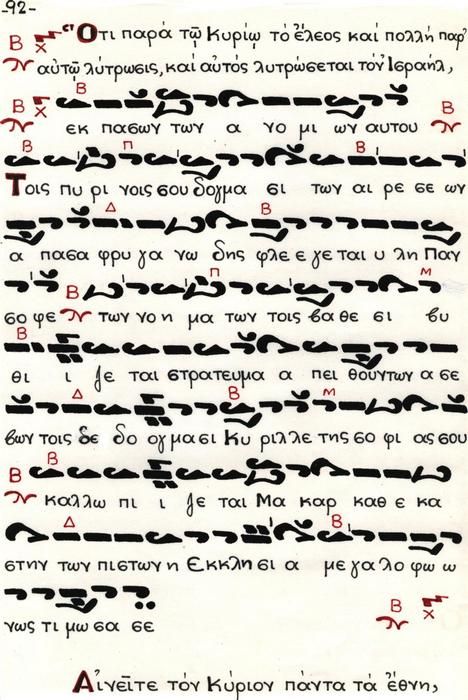 -92-
Ὅτι παρά τῷ Κυρίῳ τό ἔλεος καί πολλή παρ'
αὐτῷ λύτρωσις, καί αὐτός λυτρώσεται τόν Ἰσραήλ,
εκ πασων των α νο μι ων αυτου
Τοις πυ ρι νοις σου δογμα σι των αι ρε σε ων
α πασα φρυ γα νω δης φλε ε γε ται υ λη Παν
σο φε των νο η μα των τοις βα θε σι βυ
θι ι ζε ται στρατευμα α πει θουντων α σε
βων τοις δε δο ογ μα σι Κυ ριλλε της σο φι ας σου
καλλω πι ι ζε ται Μα καρ καθ ε κα
στην των πιστων η Εκκλη σι α με γα λο φω ω
νως τι μω σα σε
Αἰνεῖτε τόν Κύριον πάντα τά ἔθνη,